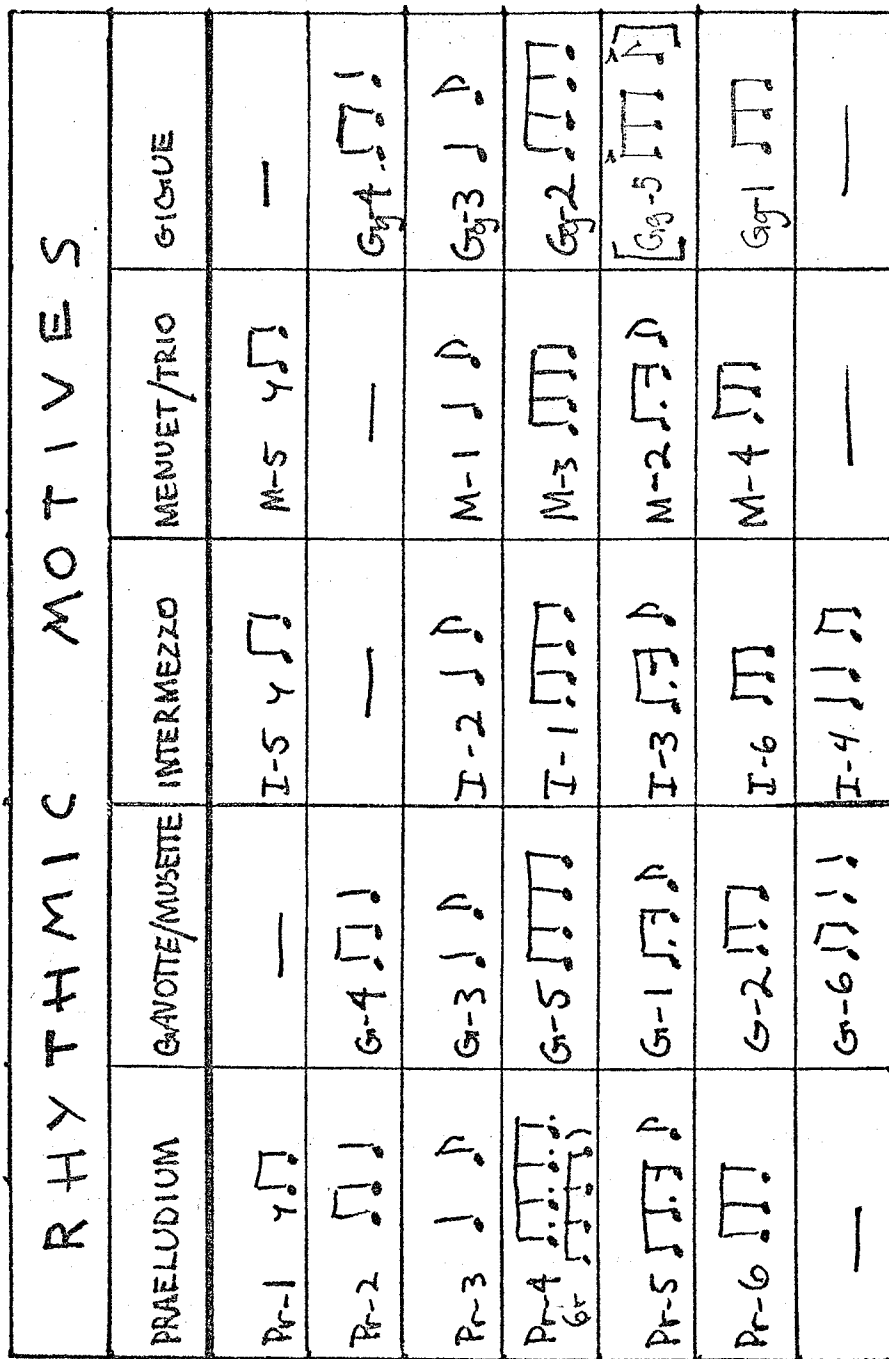 RHYTHMIC MOTIVES
PRAELUDIUM GAVOTTE/MUSETTE INTERMEZZO MENUET/TRIO GIGUE
Pr-1 — I-5 M-5 —
Pr-2 G-4 — — Gg-4
Pr-3 G-3 I-2 M-1 Gg-3
Pr-4 G-5 I-1 M-3 Gg-2
or
Pr-5 G-1 I-3 M-2 [Gg-5]
Pr-6 G-2 I-6 M-4 Gg-1
— G-6 I-4 — —